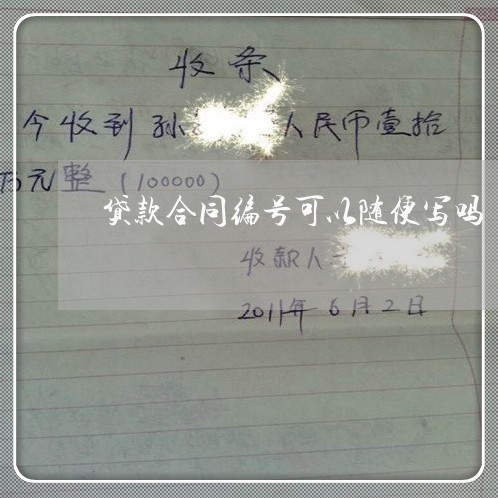 收条
今收到孙 人民币壹拾
万元整(100000)
贷款合同编号可以随便写吗
收款人
2011年6月2日